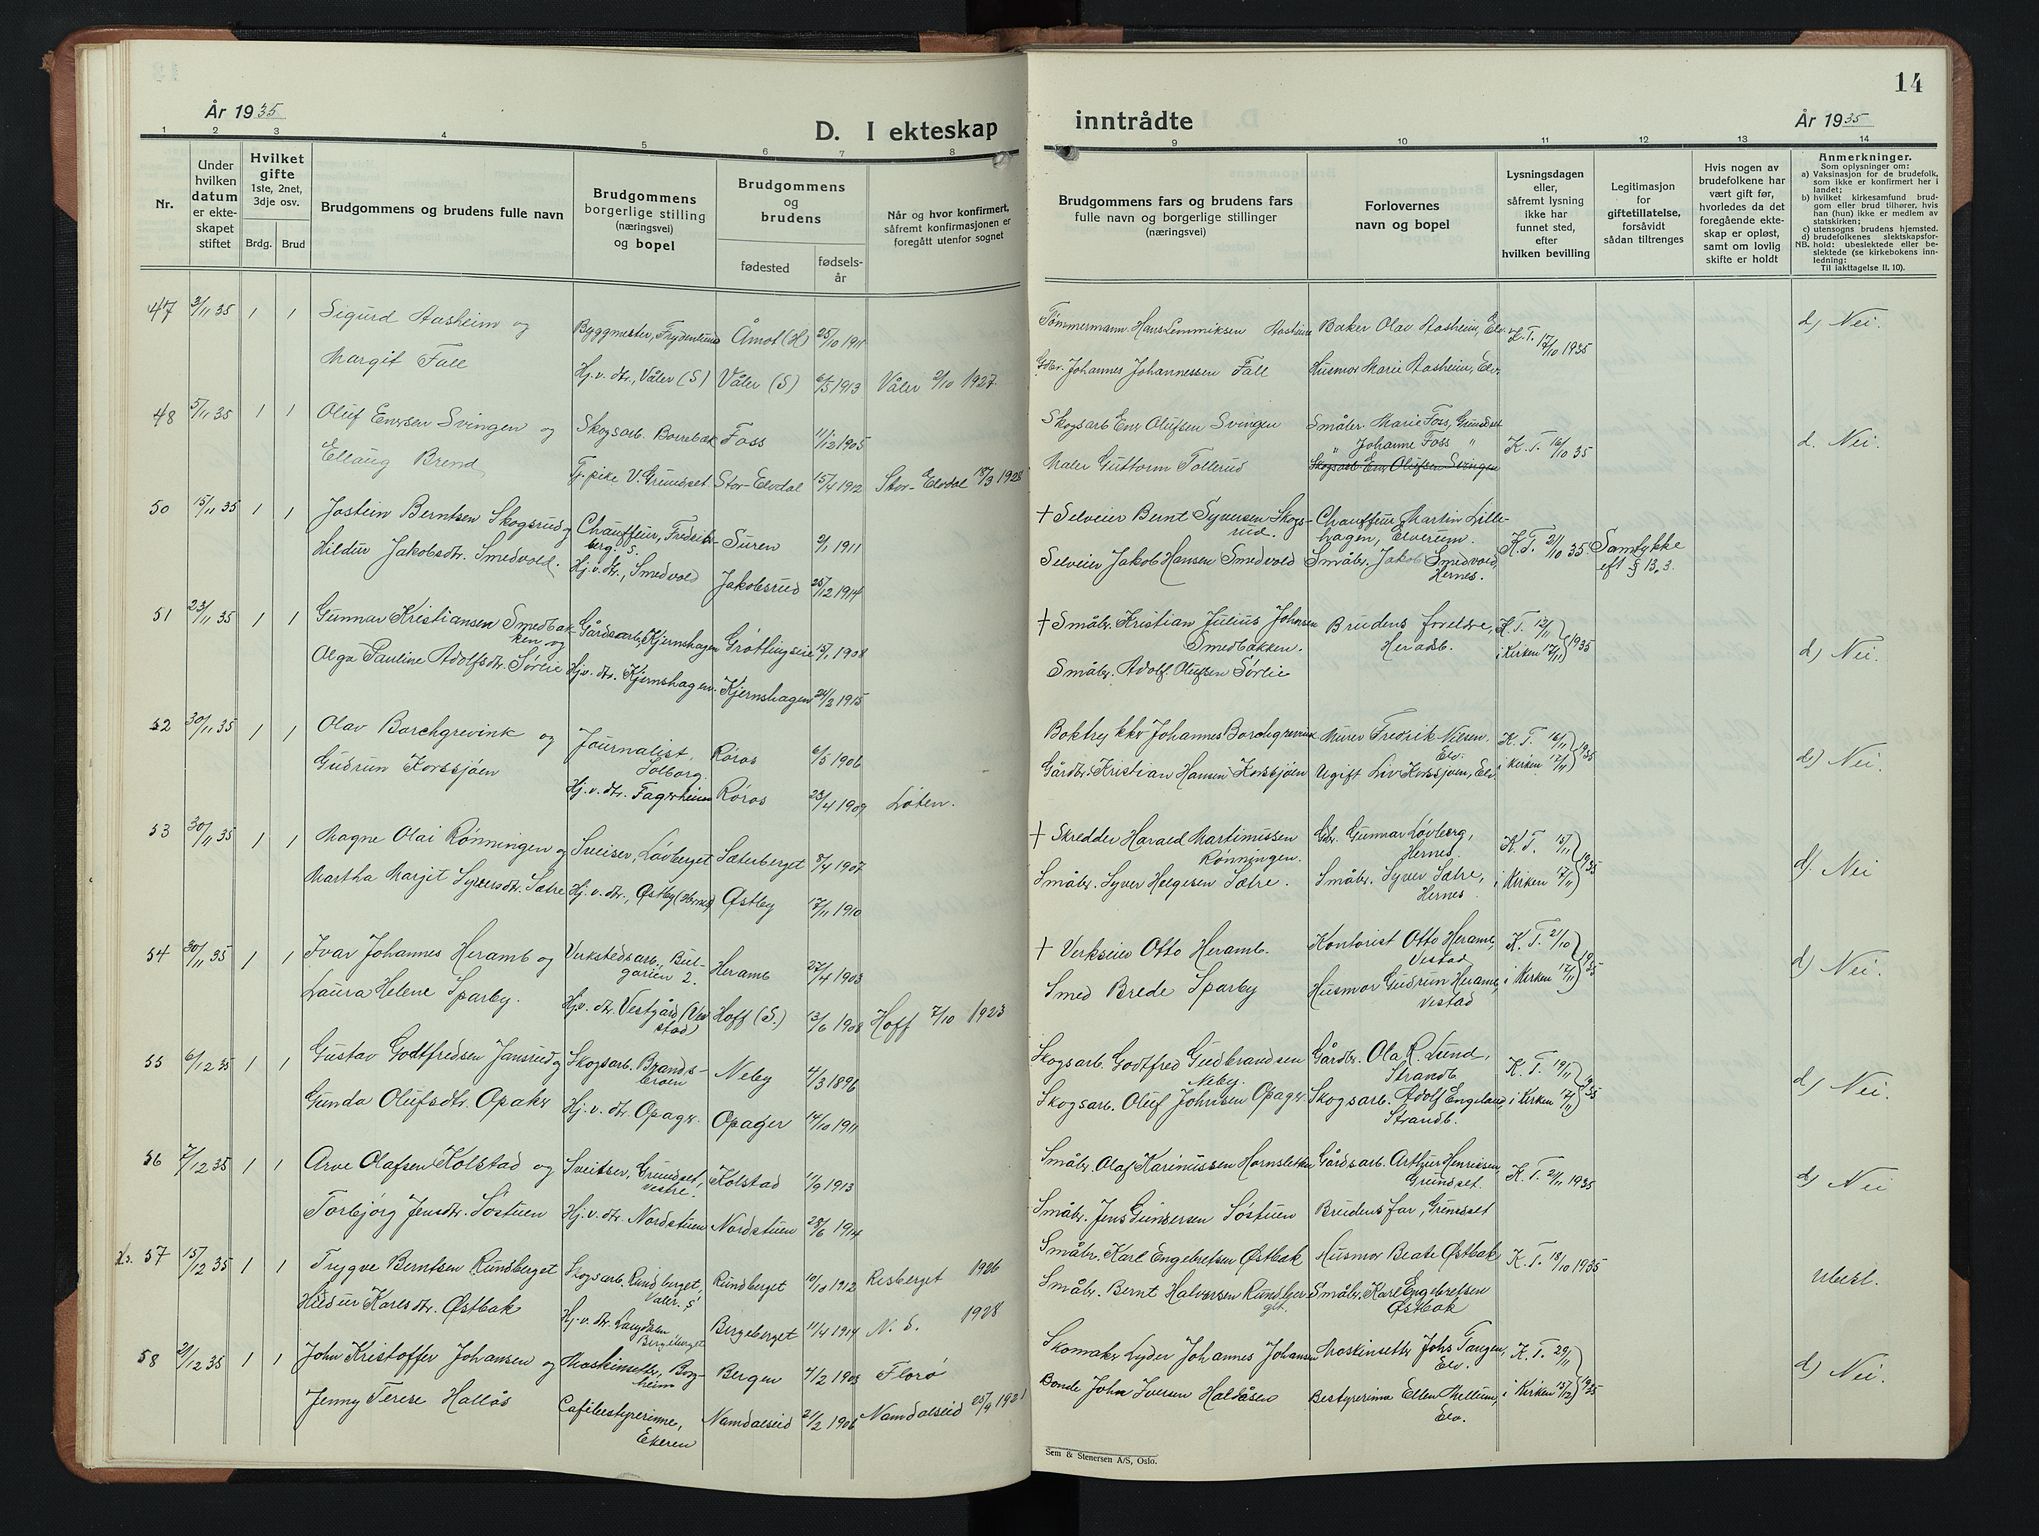 År 1935
D. I ekteskap
1 2 3 4 5 6 7 8
Nr.
Under hvilken datum er ekteskapet stiftet
Hvilket gifte 1ste, 2net, 3dje osv.
Brdg. Brud
Brudgommens og brudens fulle navn
Brudgommens borgerlige stilling (næringsvei) og bopel
Brudgommens og brudens
fødested
fødselsår
Når og hvor konfirmert, såfremt konfirmasjonen er foregått utenfor sognet
47 3/11 35 1 1 Sigurd Aasheim og Byggmester, Frydenlund Åmot (H) 25/10 1911
Margit Fall Hj.v. dtr., Våler (S) Våler (S) 6/5 1913 Våler 2/10 1927
48 5/11 35 1 1 Oluf Enersen Svingen og Skogsarb. Borrebak Foss 11/12 1905
Ellaug Brend Tj. pike V. Grundset Stor-Elvdal 15/4 1912 Stor-Elvdal 18/3 1928
50 15/11 35 1 1 Jostein Berntsen Skogsrud og Chauffeur, Fredrikberg. S. Suren 2/1 1911
Hildur Jakobsdtr. Smedvold. Hj.v. dtr., Smedvold Jakobsrud 25/12 1914
51 23/11 35 1 1 Gunnar Kristiansen Smedbakken, og Gårdsarb, Kjernshagen Grøttingseie 15/1 1908
Olga Pauline Adolfsdtr. Sørlie Hj.v. dtr. Kjernshagen. Kjernshagen 24/2 1915
52 30/11 35 1 1 Olav Borchgrevink og Journalist, Solborg. Røros 6/5 1906
Gudrun Korssjøen Hj.v. dtr. Fagerheim Røros 23/4 1909 Løten.
53 30/11 35 1 1 Magne Olai Rønningen og Sveiser, Løvberget Sæterberget 8/4 1907
Martha Margit Syversdtr. Sætre Hj.v. dtr., Østby (Hernes) Østby 17/11 1910
54 30/11 35 1 1 Ivar Johannes Heramb og Verkstedsarb., Bulgarien 2. Heramb 27/4 1903
Laura Helene Sparby. Hj.v. dtr. Vestgård (Vestad) Hoff (S.) 13/6 1908 Hoff 7/10 1923
55 6/12 35 1 1 Gustav Godtfredsen Jansrud og Skogsarb. Brandsbroen Neby 4/3 1896
Gunda Olufsdtr. Opakr Hj.v. dtr. Opagr. Opager 14/10 1911
56 7/12 35 1 1 Arve Olafsen Kolstad og Sveitser, Grundset, vestre. Kolstad 11/9 1913
Torbjørg Jensdtr. Søstuen Hj.v. dtr. Nordstuen Nordstuen 28/6 1914
57 15/12 35 1 1 Trygve Berntsen Rundberget Skogsarb. Rundberget, Våler. S Rundberget 10/10 1912 Risberget 1926
Hildur Karlsdtr. Østbak Hj.v. dtr. Langdalen Bergeberget Bergeberget 11/4 1914 N. S. 1928
58 21/12 35 1 1 John Kristoffer Johansen og Maskinsetter, Borgheim Bergen 4/2 1905 Florø
Jenny Terese Hallås Cafébestyrerinne, Ekeren Namdalseid 21/2 1906 Namdalseid 25/9 1921
14
inntrådte
År 1935
9 10 11 12 13 14
Brudgommens fars og brudens fars fulle navn og borgerlige stillinger (næringsvei)
Forlovernes navn og bopel
Lysningsdagen eller, såfremt lysning ikke har funnet sted, efter hvilken bevilling
Legitimasjon for giftetillatelse, forsåvidt sådan tiltrenges
Hvis nogen av brudefolkene har vært gift før, hvorledes da det foregående ekteskap er opløst, samt om lovlig skifte er holdt
Anmerkninger.
Som oplysninger om:
a) Vaksinasjon for de brudefolk, som ikke er konfirmert her i landet;
b) hvilket kirkesamfund brudgom eller brud tilhører, hvis han (hun) ikke er medlem av statskirken;
c) utensogns brudens hjemsted.
d) brudefolkenes slektskapsforhold: ubeslektede eller beslektede (se kirkebokens innledning:
NB. Til iakttagelse II. 10).
Tømmermann Hans Lemmiksen Aasheim Baker Olav Aasheim, Elv. K.T. 17/10 1935 d) Nei.
Gdbr. Johannes Johannessen Fall Husmor Marie Aasheim, Elv.
Skogsarb Ener Olufsen Svingen Småbr. Marie Foss, Grundset K.T. 16/10 35 d. Nei.
" Johanne Foss "
Maler Guttorm Tollerud Skogsarb Ener Olufsen Svingen
+ Selveier Bernt Syversen Skogsrud. Chauffeur Martin Lillehagen, Elverum. K.T. 21/10 35 Samtykke eft § 13.3.
Selveier Jakob Hansen Smedvold Småbr. Jakob Smedvold, Hernes.
+ Småbr. Kristian Julius Johansen Smedbakken. Brudens foreldre, Heradb. K.T. 12/11 i Kirken 17/11 1935 d) Nei.
Småbr. Adolf Olufsen Sørlie
Boktrykkr Johannes Borchgrevink Murer Fredrik Nilsen. Elv. K.T. 16/11 i Kirken 17/11 1935 d) Nei.
Gårdbr. Kristian Hansen Korssjøen Ugift Liv Korssjøen, Elv.
+ Skredder Harald Martinussen Rønningen. Gbr. Gunnar Løvberg, Hernes. K.T. 15/11 i Kirken 17/11 1935 d). Nei
Småbr. Syver Helgesen Sætre. Småbr. Syver Sætre, Hernes
+ Verkseier Otto Heramb. Kontorist Otto Heramb, Vestad K.T. 21/10 i Kirken 17/11 1935 d) Nei.
Smed Brede Sparby Husmor Gudrun Heramb, Vestad
Skogsarb. Godtfred Gudbrandsen Neby. Gårdbr. Ola R. Lund, Strandb. K.T. 19/11 i Kirken 17/11 1935 d) Nei.
Skogsarb. Oluf Johnsen Opager Skogsarb. Adolf Engeland, Strandb.
Småbr. Olaf Karinussen Hornsletten Gårdsarb. Arthur Henriksen, Grundset. K.T. 21/11 1935 d) Nei
Småbr. Jens Gundersen Søstuen Brudens far, Grundset
Småbr. Karl Engebretsen Østbak Husmor Beate Østbak K.T. 18/10 1935 Ubesl.
Småbr. Bernt Halvorsen Rundberget. Småbr. Karl Engebretsen Østbak
Skomaker Lyder Johannes Johansen Maskinsetter Johs Tangen, Elv. K.T. 29/11 i Kirken 15/12 1935 d) Nei.
Bonde John Iversen Haldåsen Bestyrerinne Ellen Mellum, Elv.
Sem & Stenersen A/S, Oslo.